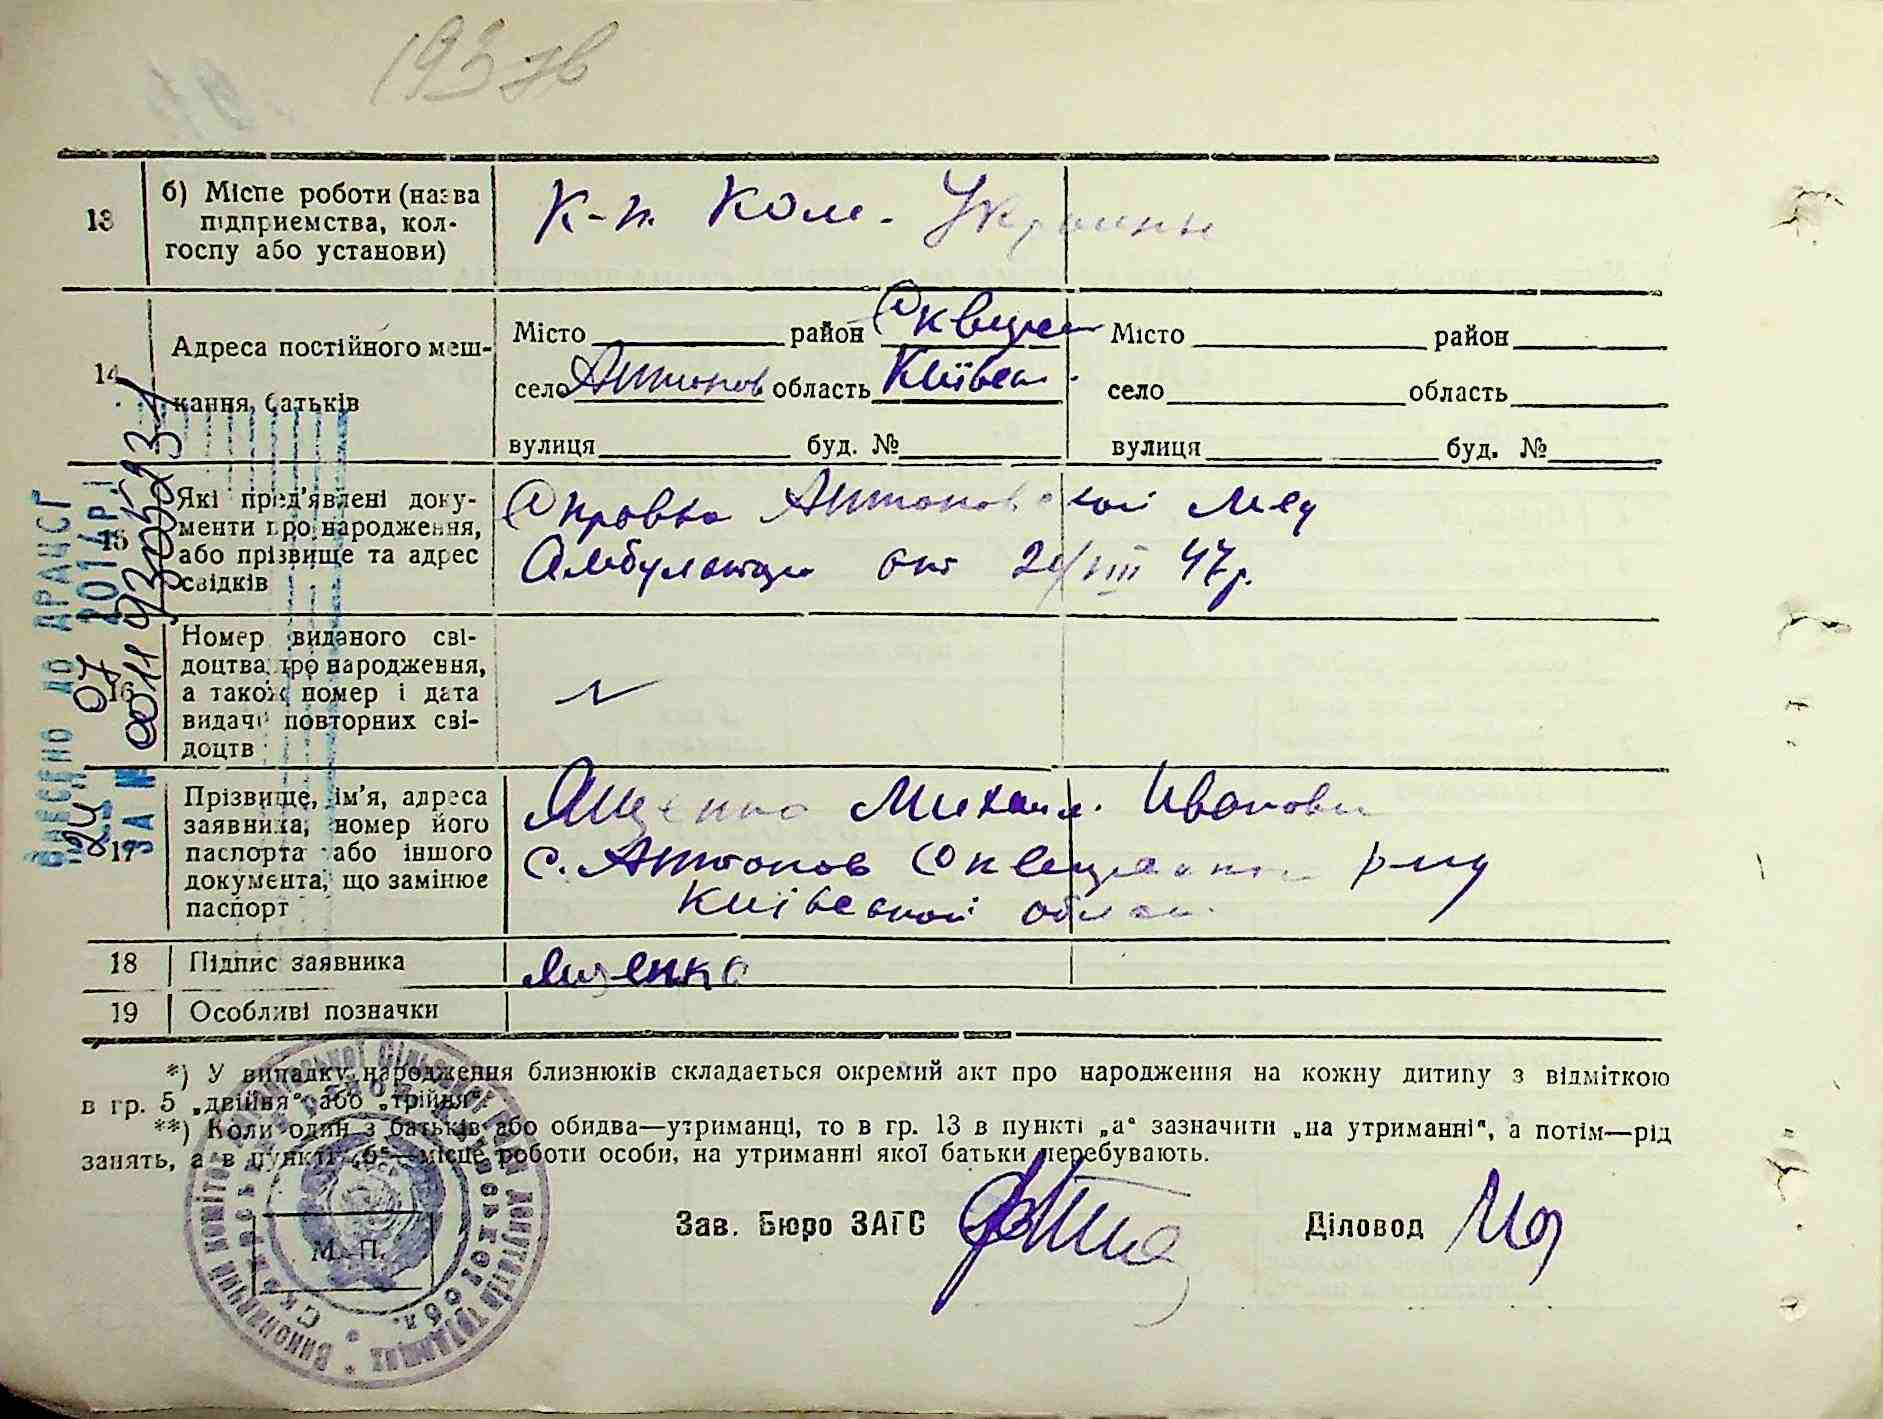 193 зв
13
б) Місце роботи (назва
підприємства, кол-
госпу або установи)
К-п Ком. Украины
14
Адреса постійного меш-
кання, батьків
Місто район Сквирск
село Антонов область Київськ.
вулиця буд. №
Місто район
село область
вулиця буд. №
15
Які пред'явлені доку-
менти про народження,
або прізвище та адрес
свідків
Справка Антоновской Мед
Амбулатори от 2/VIII 47р.
16
Номер виданого сві-
доцтва про народження,
а також номер і дата
видачі повторних сві-
доцтв
17
Прізвище, ім'я, адреса
заявника, номер його
паспорта або іншого
документа, що замінює
паспорт
Ященко Михаил. Иванови
с. Антонов Сквирского р-ну
Київской облас.
18
Підпис заявника
Ященко
19
Особливі позначки
*) У випадку народження близнюків складається окремий акт про народження на кожну дитину з відміткою
в гр. 5 „двійня" або „трійня".
**) Коли один з батьків або обидва—утриманці, то в гр. 13 в пункті „а" зазначити „на утриманні", а потім—рід
занять, а в пункті „б"—місце роботи особи, на утриманні якої батьки перебувають.
Зав. Бюро ЗАГС
Діловод
М. П.
Внесено до ДРАЦСГ
24 07 2017 р.
за № 00119305231